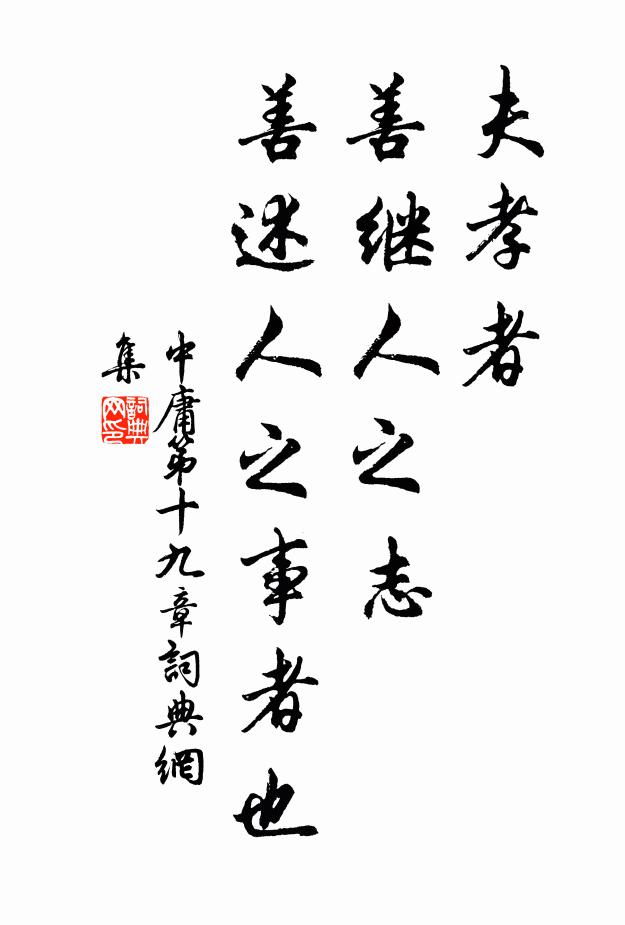 夫孝者
善继人之志
善述人之事者也
中庸第十九章詞典網
集
詞典
网印